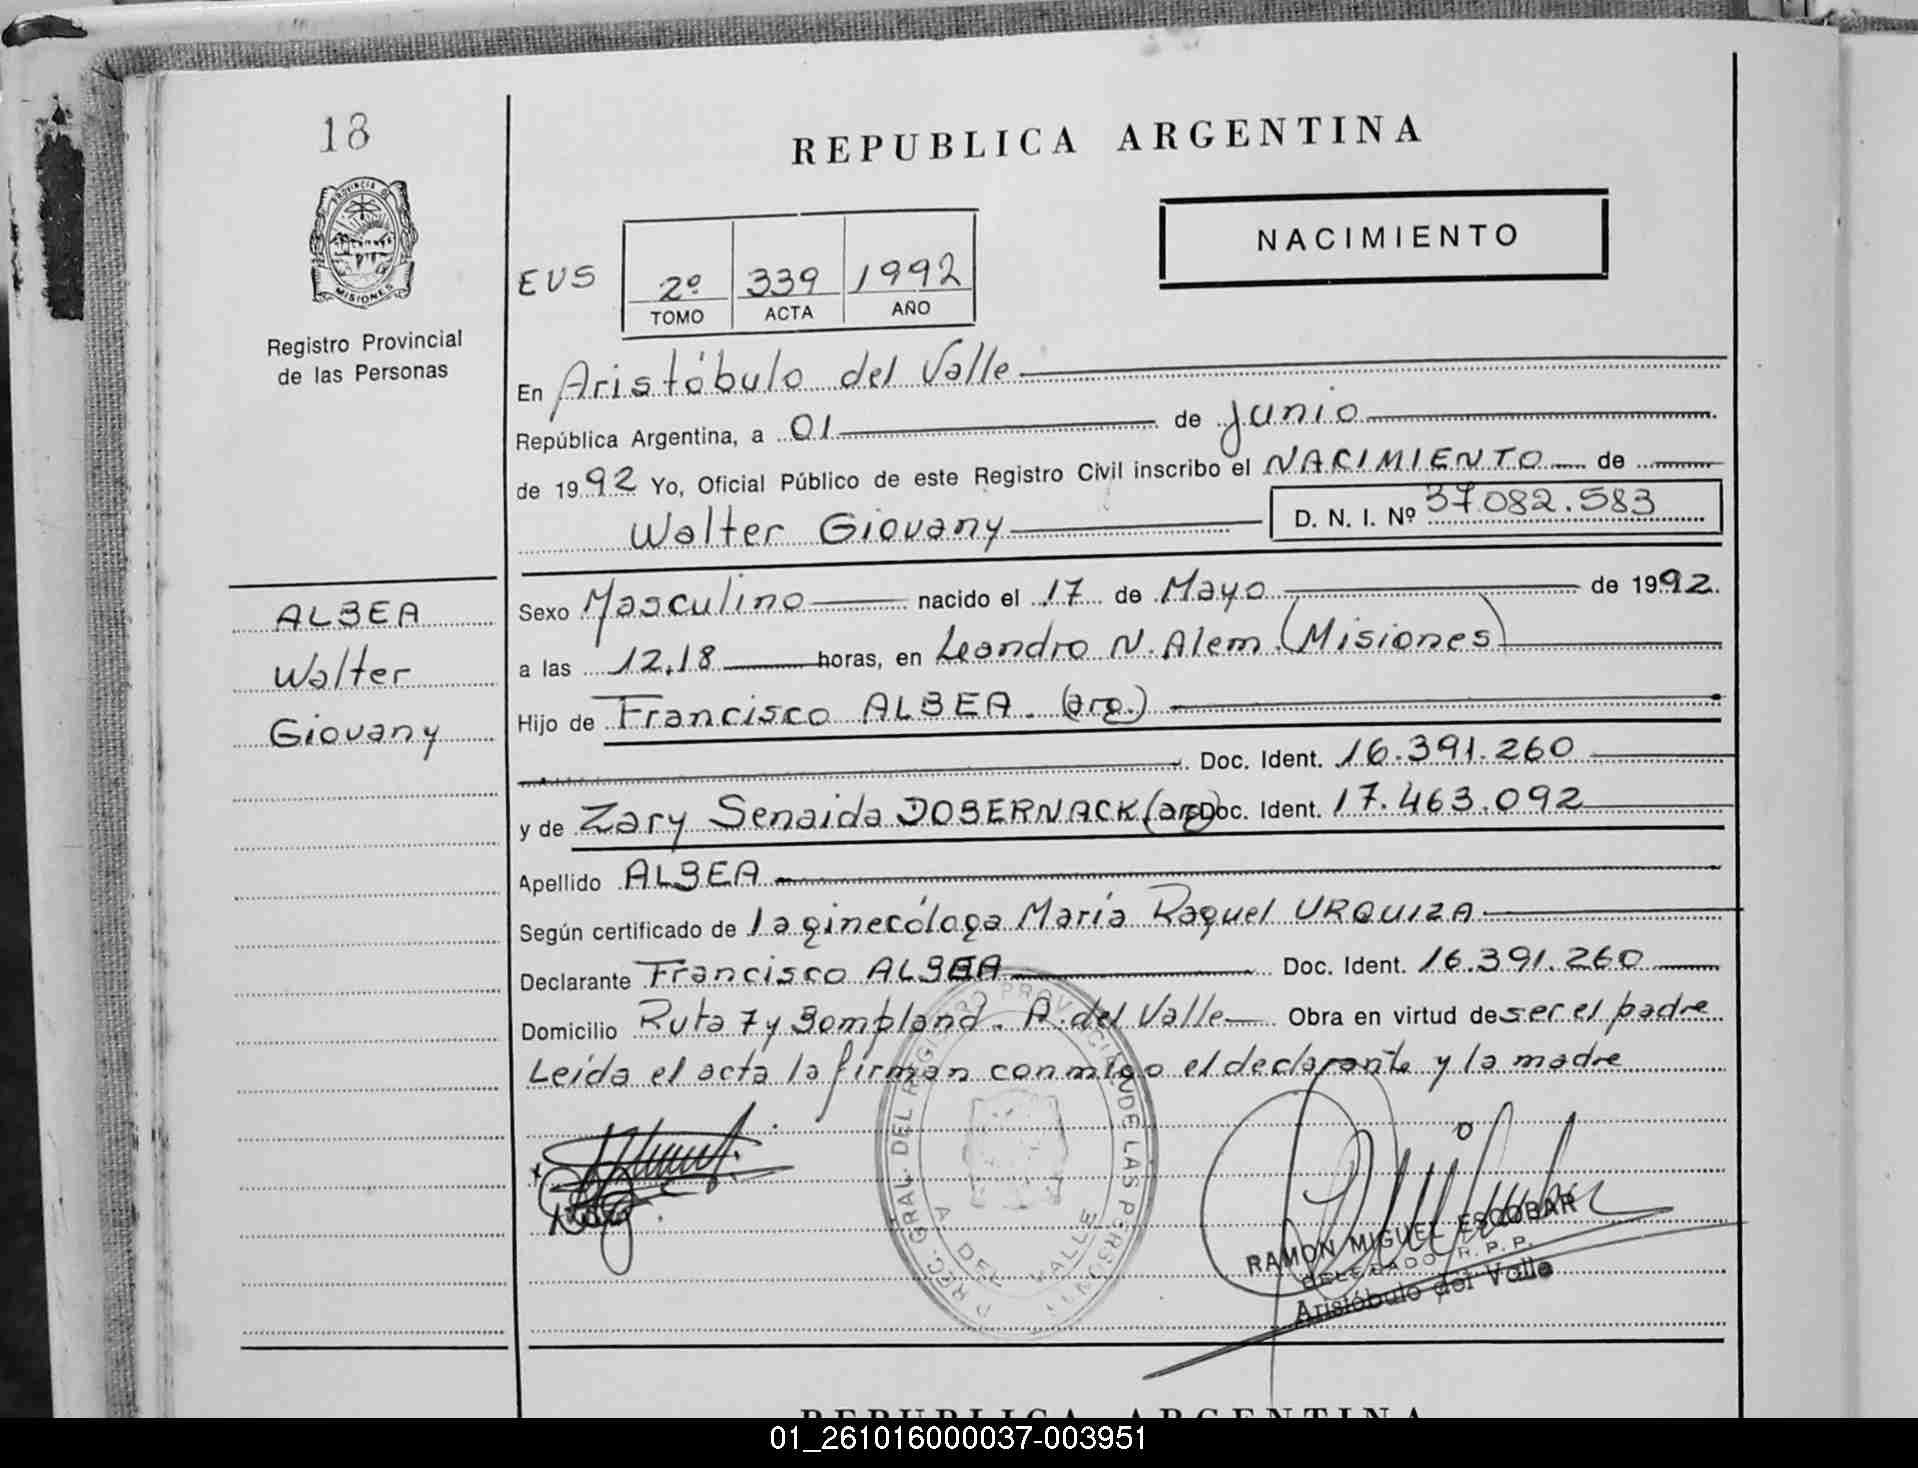 18
PROVINCIA DE
MISIONES
Registro Provincial
de las Personas
REPUBLICA ARGENTINA
NACIMIENTO
EVS 2º 339 1992
TOMO ACTA AÑO
En Aristóbulo del Valle
República Argentina, a 01 de Junio
de 1992 Yo, Oficial Público de este Registro Civil inscribo el NACIMIENTO de
Walter Giovany D. N. I. Nº 37.082.583
ALBEA
Walter
Giovany
Sexo Masculino nacido el 17 de Mayo de 1992.
a las 12.18 horas, en Leandro N. Alem (Misiones)
Hijo de Francisco ALBEA. (arg.)
Doc. Ident. 16.391.260
y de Zary Senaida DOBERNACK (arg) Doc. Ident. 17.463.092
Apellido ALBEA
Según certificado de la ginecóloga María Raquel URQUIZA
Declarante Francisco ALBEA Doc. Ident. 16.391.260
Domicilio Ruta 7 y Bompland. A. del Valle Obra en virtud de ser el padre
Leída el acta la firman conmigo el declarante y la madre
GRAL. DEL REGISTRO PROVINCIAL DE LAS PERSONAS
A. DEL VALLE
RAMON MIGUEL ESCOBAR
DELEGADO R. P. P.
Aristóbulo del Valle
REPUBLICA ARGENTINA
01_261016000037-003951